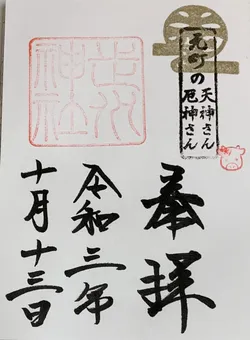 元町の
天神さん
厄神さん
奉拝
走水
神社
令和三年
十月十三日